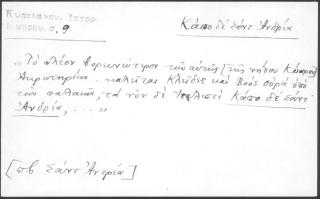 Κυπριανου, Ιστορ.
Κύπρου, σ. 9
Κάπο δέ Σάντ Ἀνδρία
« Τὸ πλέον βορειώτερον τῶν αὐτῆς [τῆς νήσου Κύπρου]
Ἀκρωτηρίων.. καλεῖται Κλεῖδες καὶ Βοὸς οὐρὰ ὑπὸ
τῶν παλαιῶν, τὰ νῦν δὲ Ἰταλιστί Κάπο δέ Σάντ
Ἀνδρία, . . . »
[πβ. Σάντ Ἀνδρία]